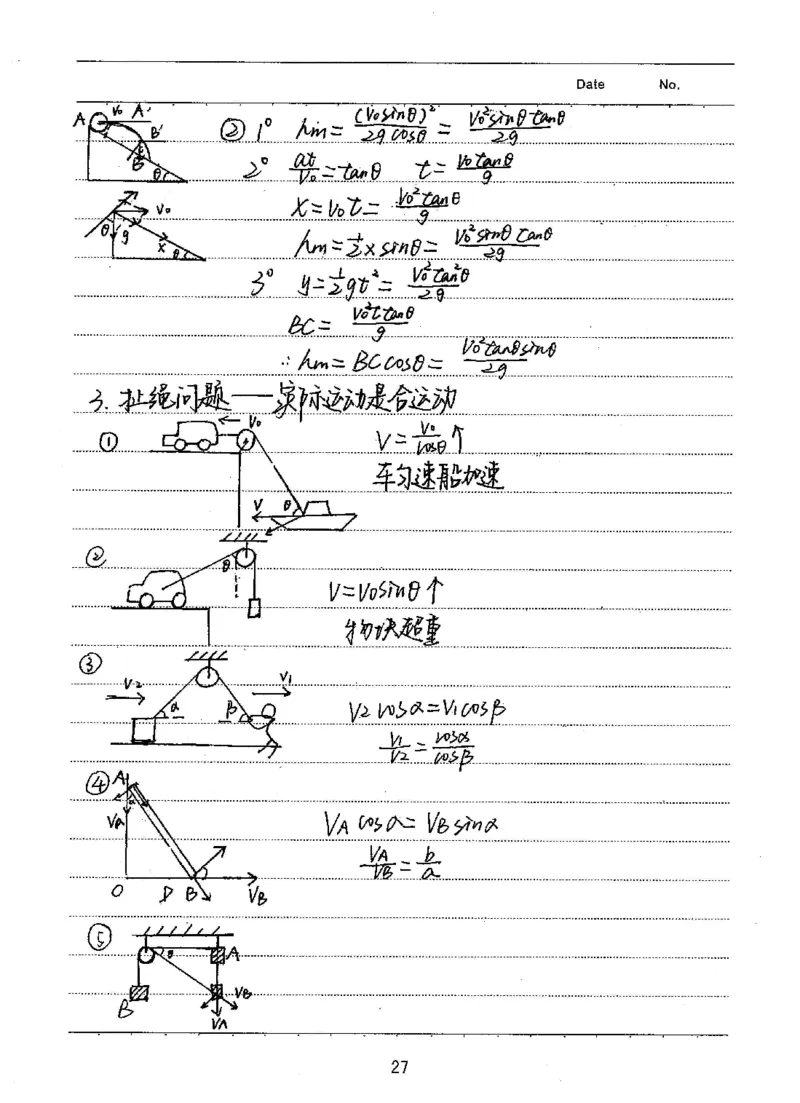 Date No.
A V₀ A' B' B θ
② 1° hm = (V₀sinθ)²/2gcosθ = V₀²sinθtanθ/2g
2° at/V₀ = tanθ t = V₀tanθ/g
V₀ θ g x θ
X = V₀t = V₀²tanθ/g
hm = ½xsinθ = V₀²sinθtanθ/2g
3° y = ½gt² = V₀²tan²θ/2g
BC = V₀²tanθ/g
∴ hm = BCcosθ = V₀²tanθsinθ/2g
3. 扯绳问题——实际运动是合运动
① V₀ V = V₀/cosθ ↑
车匀速船加速
V θ
② θ
V = V₀sinθ ↑
物块超重
③ V₂ V₁
α β V₂cosα = V₁cosβ
V₁/V₂ = cosα/cosβ
④ A
α Va VAcosα = VBsinα
VA/VB = b/a
O D B VB
⑤ θ A
B VB
VA
27